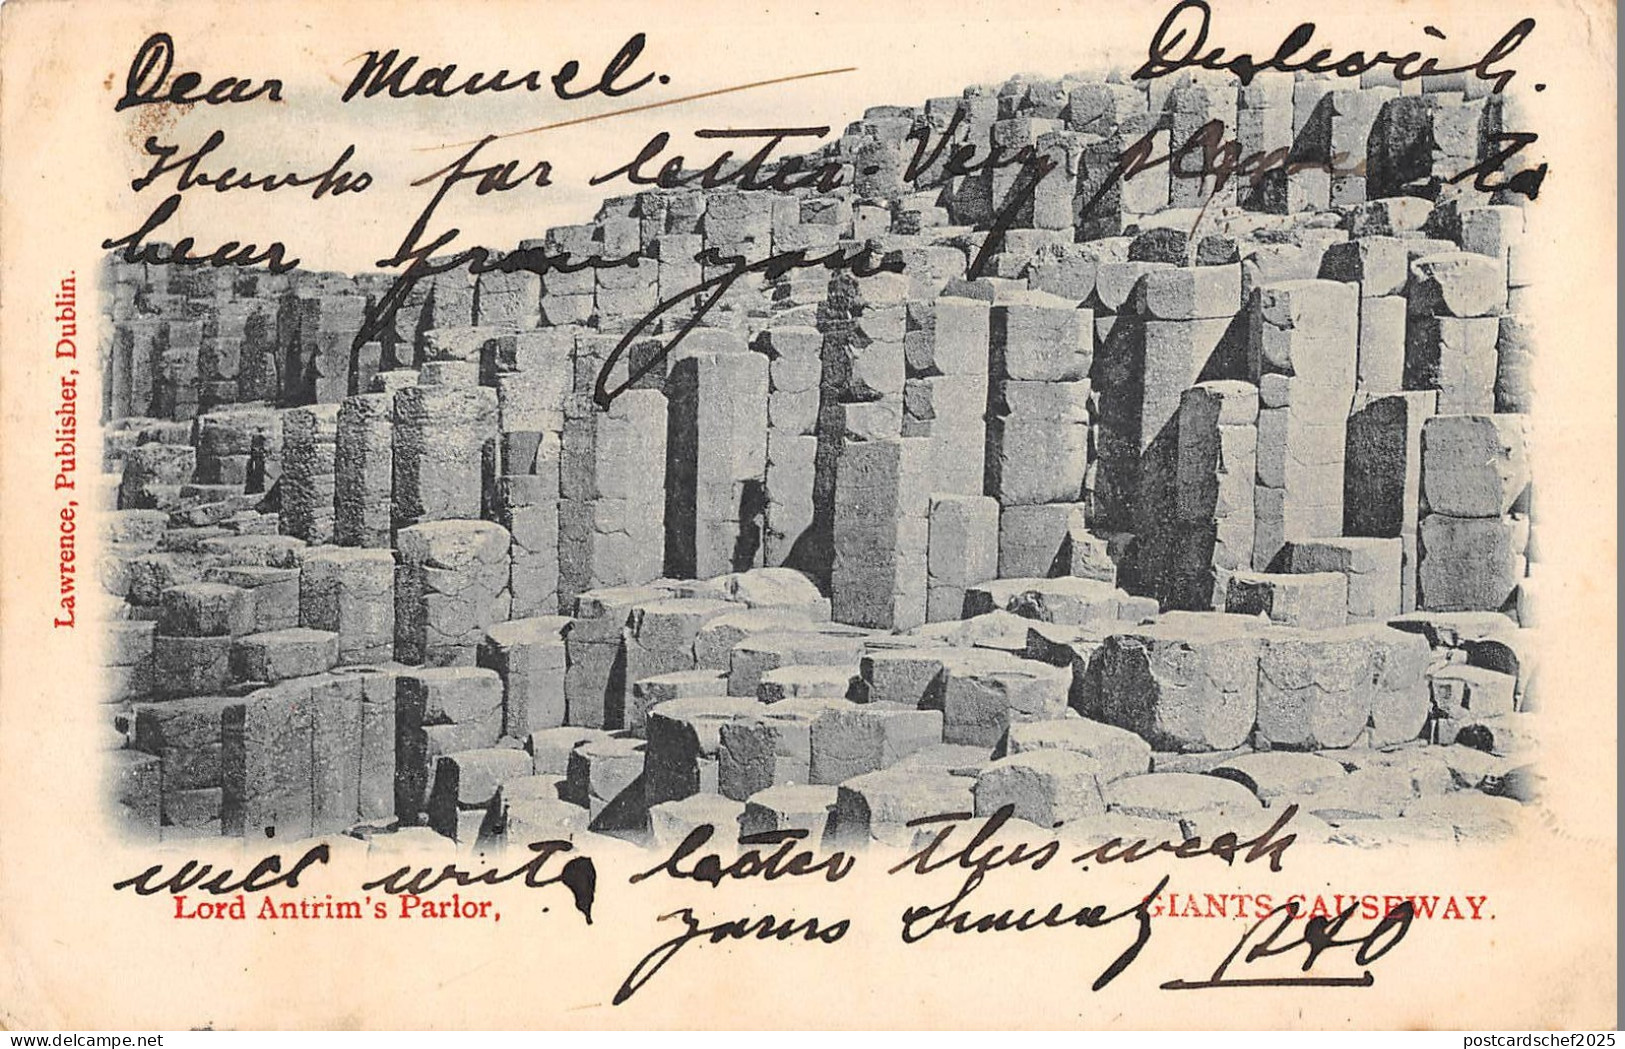 Dulwich.
Dear Mamel.
Thanks for letter. Very pleased to
hear from you
will write letter this week
yours
Lord Antrim's Parlor,
GIANTS CAUSEWAY.
Lawrence, Publisher, Dublin.
delcampe.net
postcardschef2025